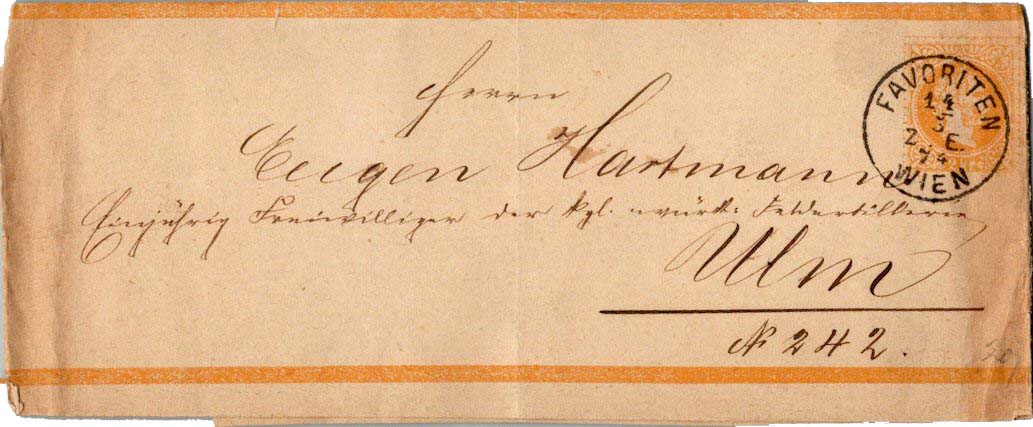 Herrn
Eugen Hartmann
Einjährig Freiwilliger der kgl. württ: Feldartillerie
Ulm
№ 242.
FAVORITEN
14
WIEN